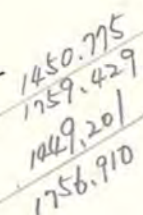 - 1450.775
1759.429
1449,201
1756.910